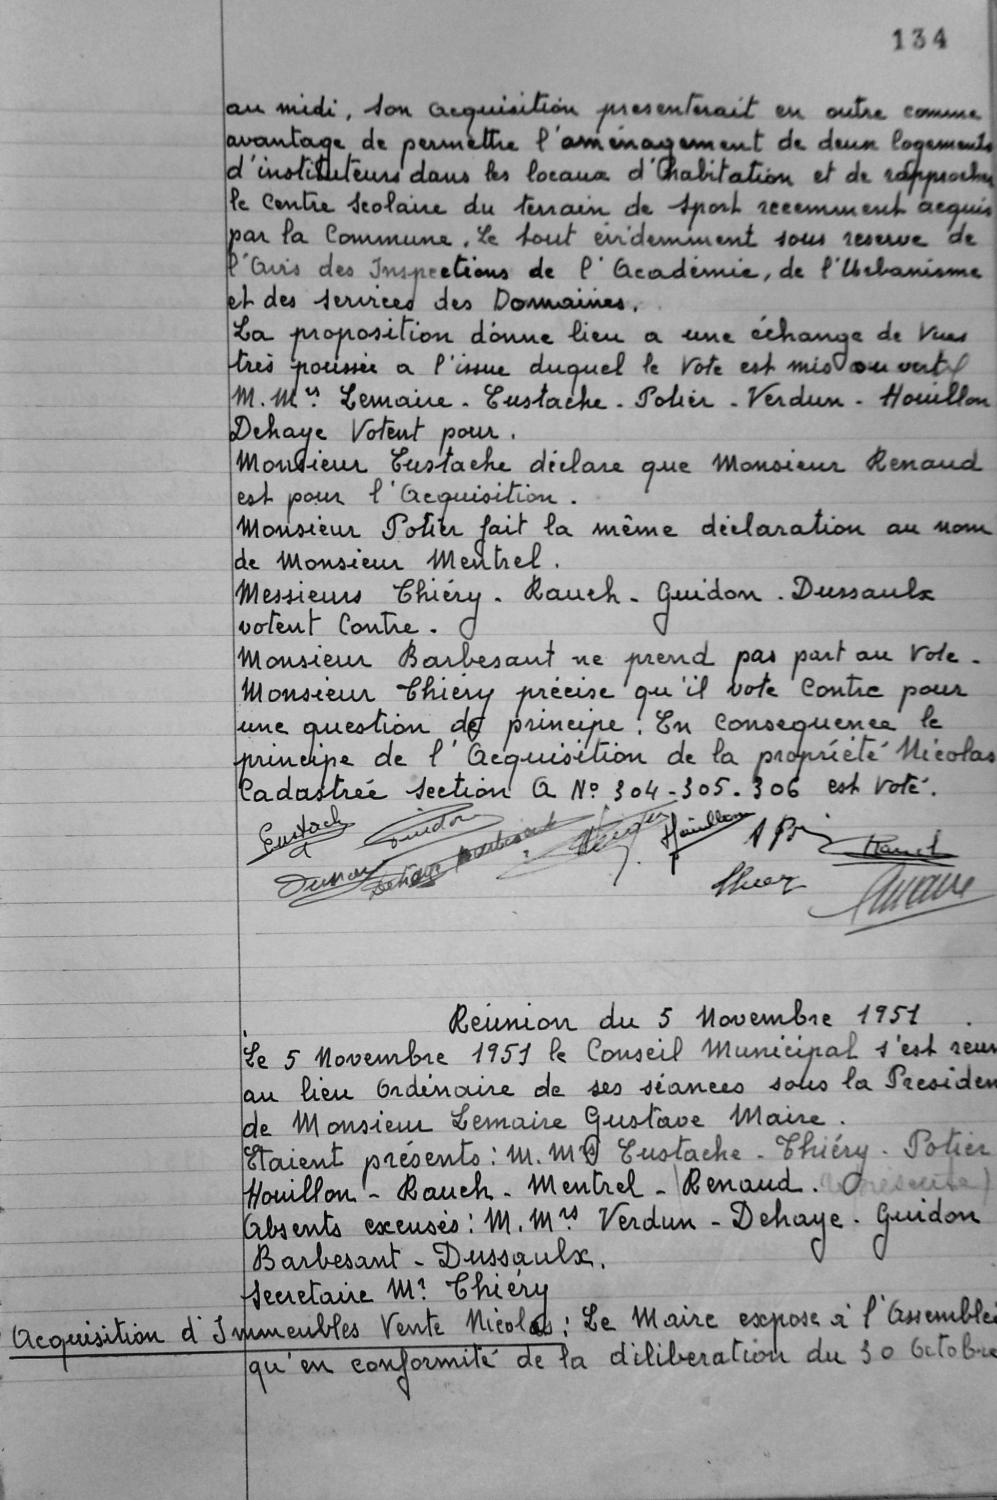 134
au midi, son acquisition presenterait en outre comme
avantage de permettre l'aménagement de deux logements
d'instituteurs dans les locaux d'habitation et de rapprocher
le Centre Scolaire du terrain de sport recemment acquis
par la Commune. Le tout évidemment sous reserve de
l'Avis des Inspections de l'Académie, de l'Urbanisme
et des services des Domaines.
La proposition donne lieu a une échange de Vues
très poussée a l'issue duquel le Vote est mis ouvert
M.Mrs Lemaire - Eustache - Potier - Verdun - Houillon
Dehaye Votent pour.
Monsieur Eustache déclare que Monsieur Renaud
est pour l'Acquisition.
Monsieur Potier fait la même déclaration au nom
de Monsieur Mentrel.
Messieurs Thiéry - Rauch - Guidon - Dussaulx
votent Contre.
Monsieur Barbesant ne prend pas part au Vote.
Monsieur Thiéry précise qu'il vote Contre pour
une question de principe. En consequence le
principe de l'Acquisition de la propriété Nicolas
Cadastrée section A No 304-305-306 est Voté.
Eustach Guidon Houillon Rauch
Réunion du 5 Novembre 1951
Le 5 Novembre 1951 le Conseil Municipal s'est reun
au lieu Ordinaire de ses séances sous la Presiden
de Monsieur Lemaire Gustave Maire.
Etaient présents: M.Mrs Eustache - Thiéry - Potier
Houillon - Rauch - Mentrel - Renaud.
Absents excusés: M.Mrs Verdun - Dehaye - Guidon
Barbesant - Dussaulx.
Secretaire Mr Thiéry
Acquisition d'Immeubles Vente Nicolas: Le Maire expose à l'Assemblée
qu'en conformité de la déliberation du 30 Octobre